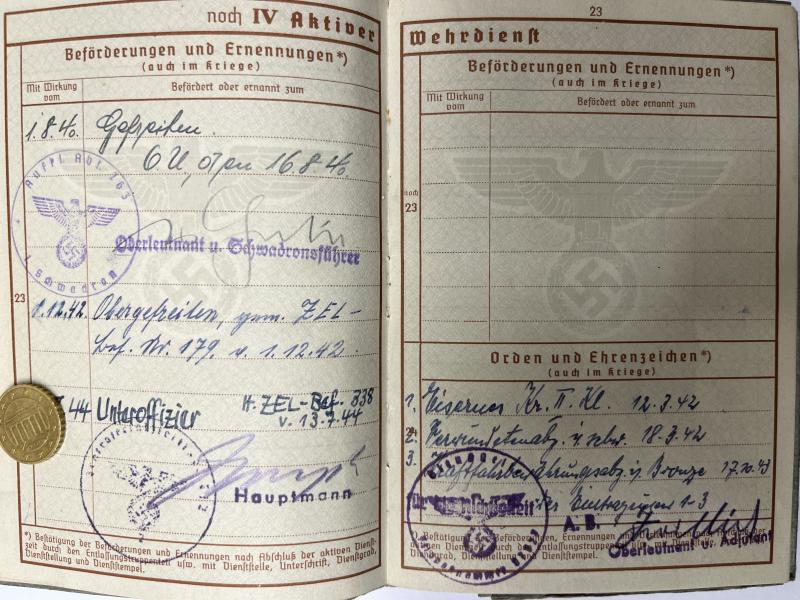 noch IV Aktiver
Beförderungen und Ernennungen*)
(auch im Kriege)
Mit Wirkung vom
Befördert oder ernannt zum
1.8.40. Gefreiten.
O.U., den 16.8.40
Aufkl. Abt. 163
1. Schwadron
Oberleutnant u. Schwadronsführer
23
1.12.42. Obergefreiten, gem. ZEL-
Bef. Nr. 179. v. 1.12.42.
44 Unteroffizier H. ZEL-Bef. 338
v. 13.7.44
Hauptmann
*) Bestätigung der Beförderungen und Ernennungen nach Abschluß der aktiven Dienst-
zeit durch den Entlassungstruppenteil usw. mit Dienststelle, Unterschrift, Dienstgrad,
Dienststellung und Dienststempel.
23
Wehrdienst
Beförderungen und Ernennungen*)
(auch im Kriege)
Mit Wirkung vom
Befördert oder ernannt zum
noch
23
Orden und Ehrenzeichen*)
(auch im Kriege)
1. Eisernes Kr. II. Kl. 12.3.42
2. Verwundetenabz. i. schw. 18.3.42
3. Kraftfahrbewährungsabz. i. Bronze 17.10.43
für die Eintragungen 1-3
A.B.
Oberleutnant u. Adjutant